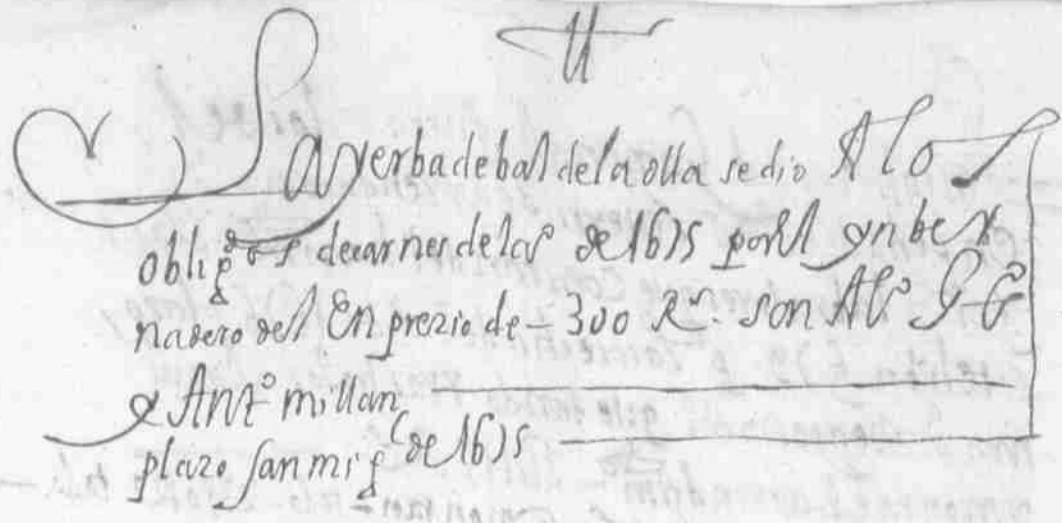 La yerba de bal de la olla se dio A los
oblig^dos de carnes de la de 1615 por el ynber
nadero del En prezio de - 300 R^s. son Al^o
y Ant^o millan
plazo san mig^l de 1615